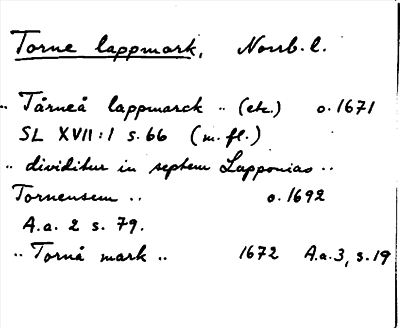 Torne lappmark, Norrb. l.
.. Tårneå lappmarck .. (etc.) o. 1671
SL XVII:1 s. 66 (m. fl.)
.. dividitur in septem Lapponias ..
Tornensem .. o. 1692
A.a. 2 s. 79.
.. Tornå mark .. 1672 A.a. 3, s. 19